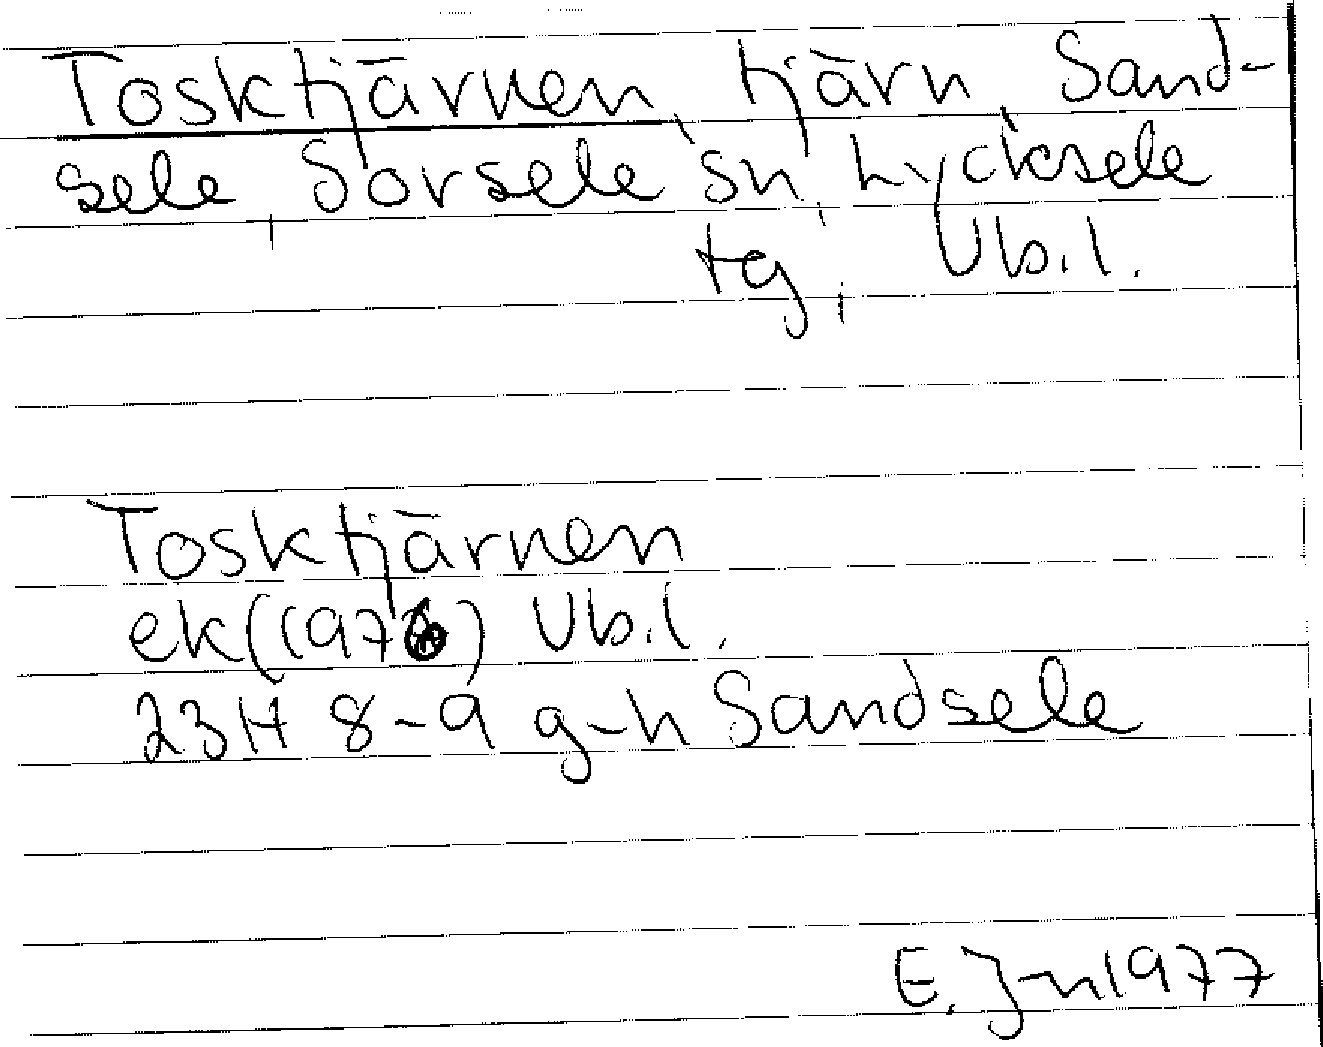 Tosktjärnen, tjärn, Sand-
sele, Sorsele sn, Lycksele
tg, Vb.l.
Tosktjärnen
ek(1976) Vb.l.
23H 8-9 g-h Sandsele
E. Jn 1977